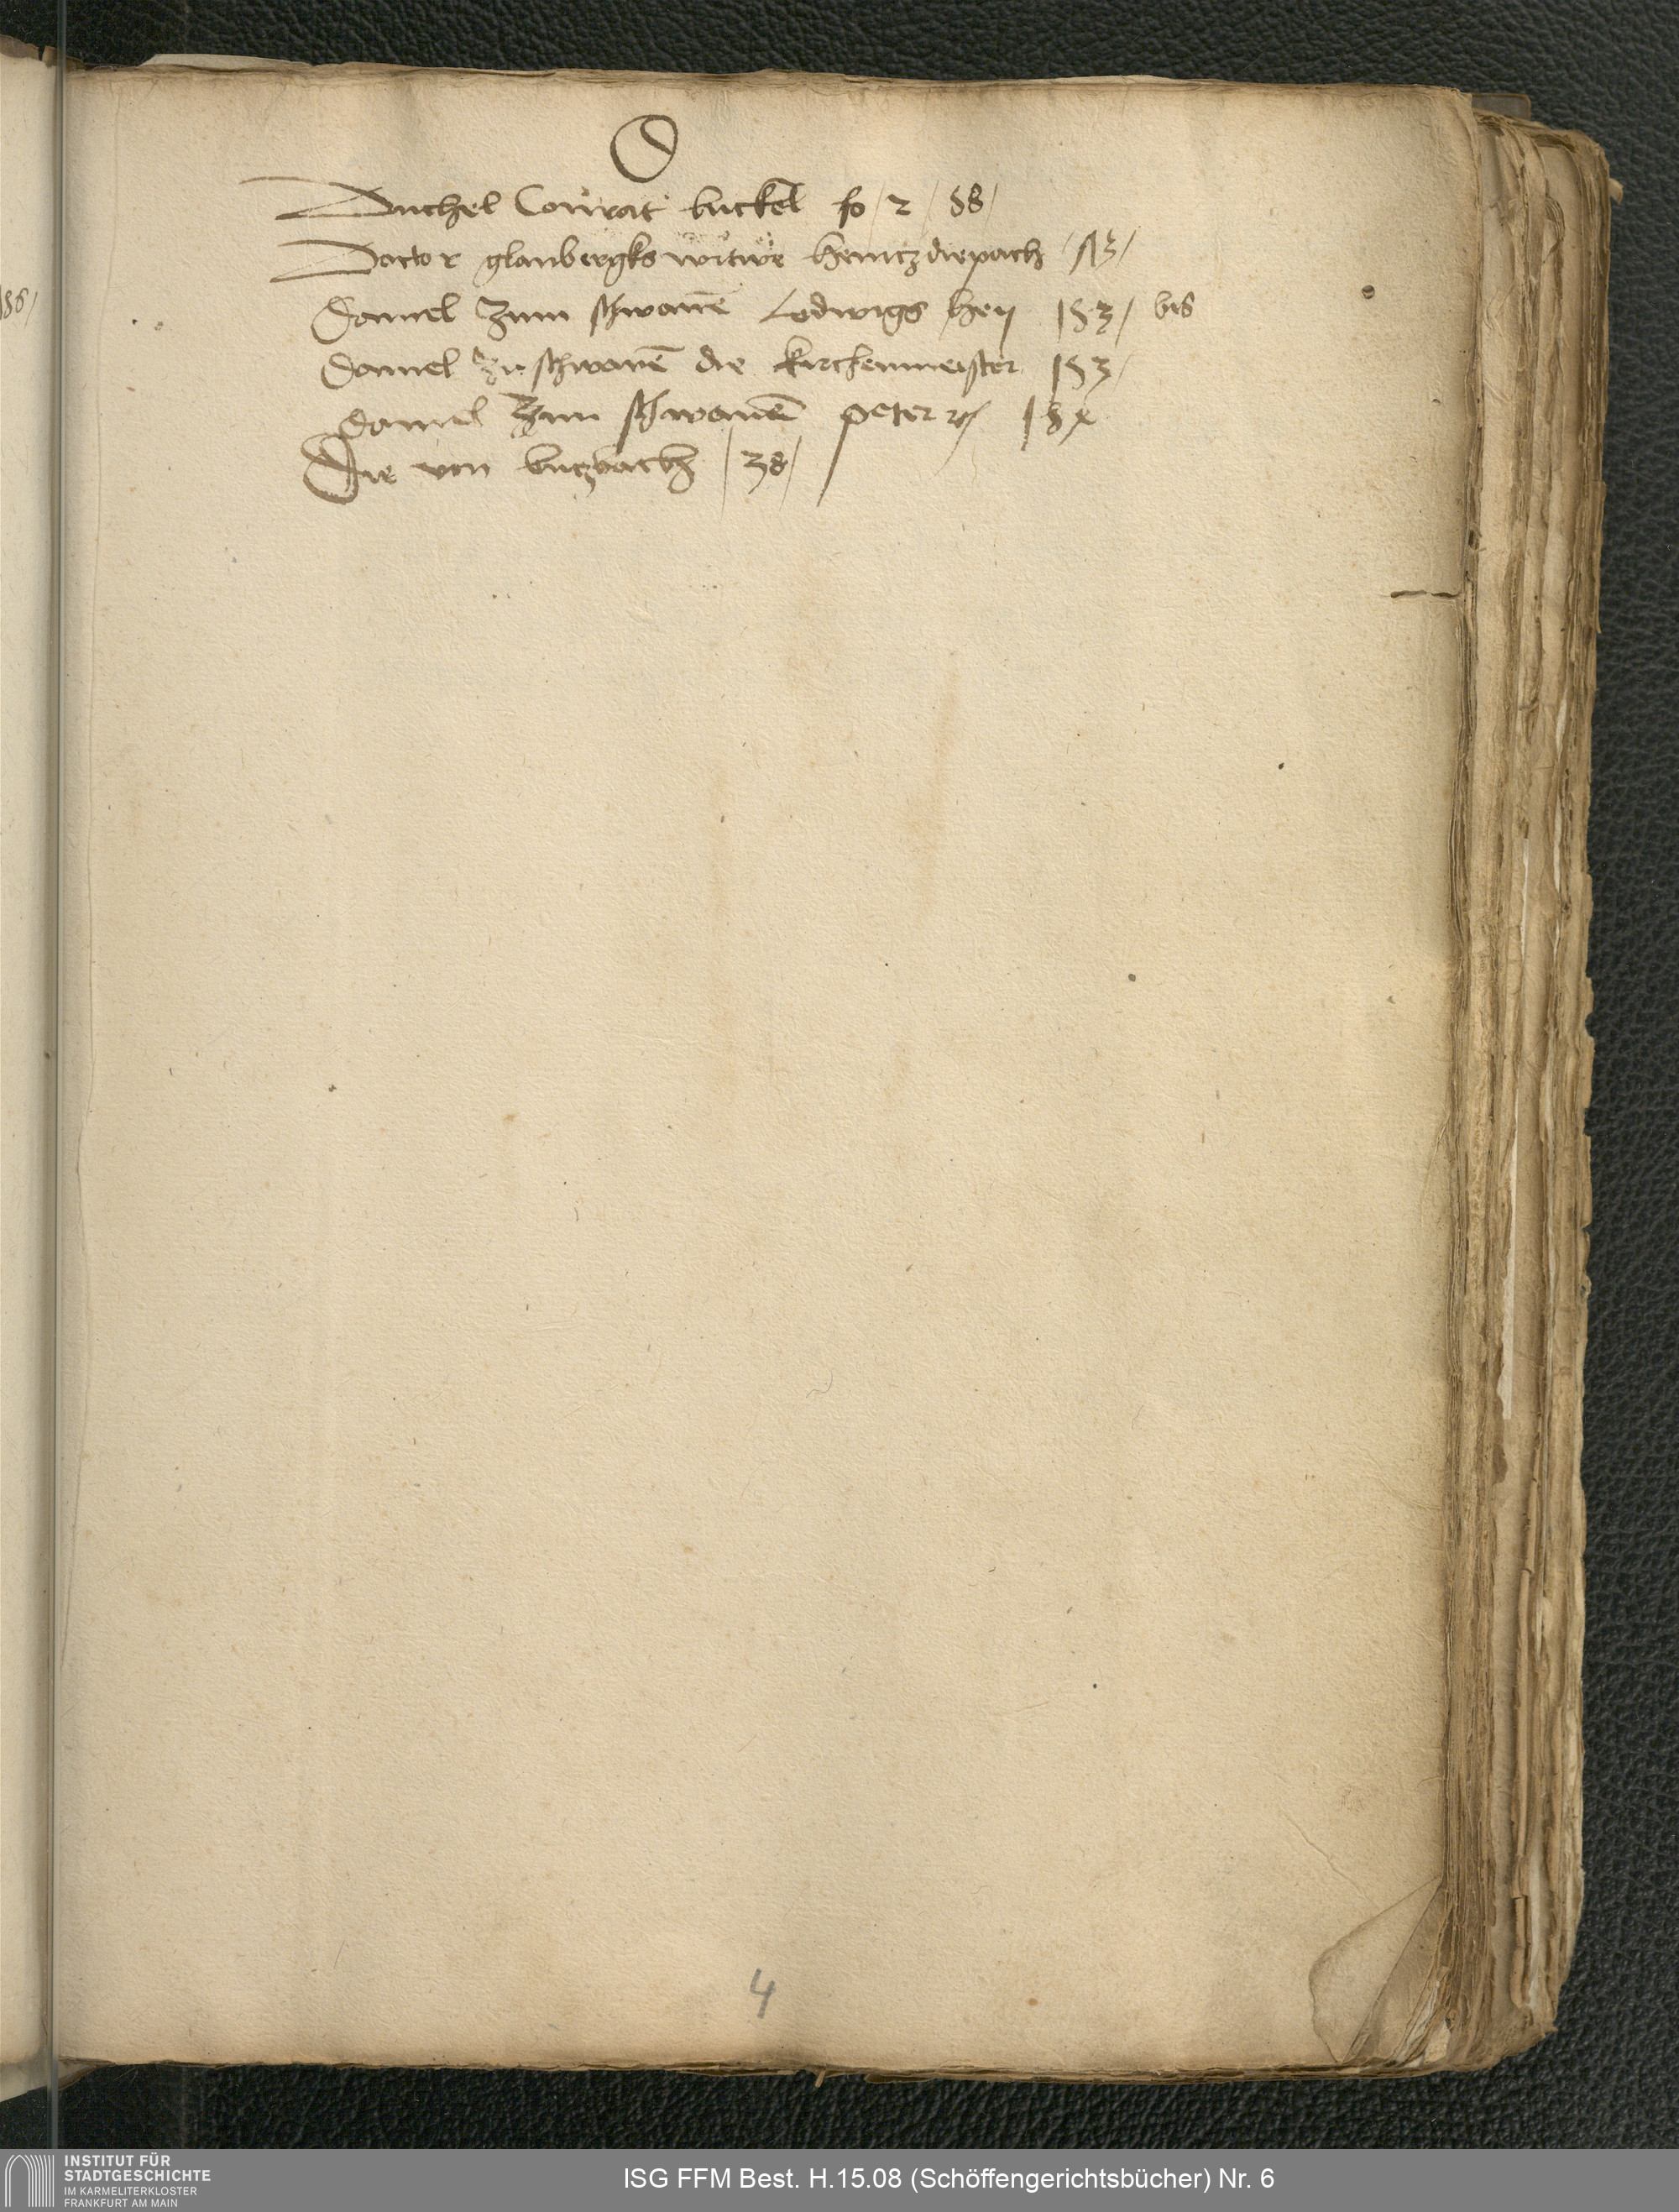 D
Duchel Conrat buckel fo / 2 /
Doctor glaubergks witwe Hentz diepach
136/
Daniel zum schwanē Lodwigs hen 153 / bis
Daniel zu schwanē die kirchenmeister 153
Daniel zum schwanē peter
Die von butzbach / 38 /
4
INSTITUT FÜR
STADTGESCHICHTE
IM KARMELITERKLOSTER
FRANKFURT AM MAIN
ISG FFM Best. H.15.08 (Schöffengerichtsbücher) Nr. 6